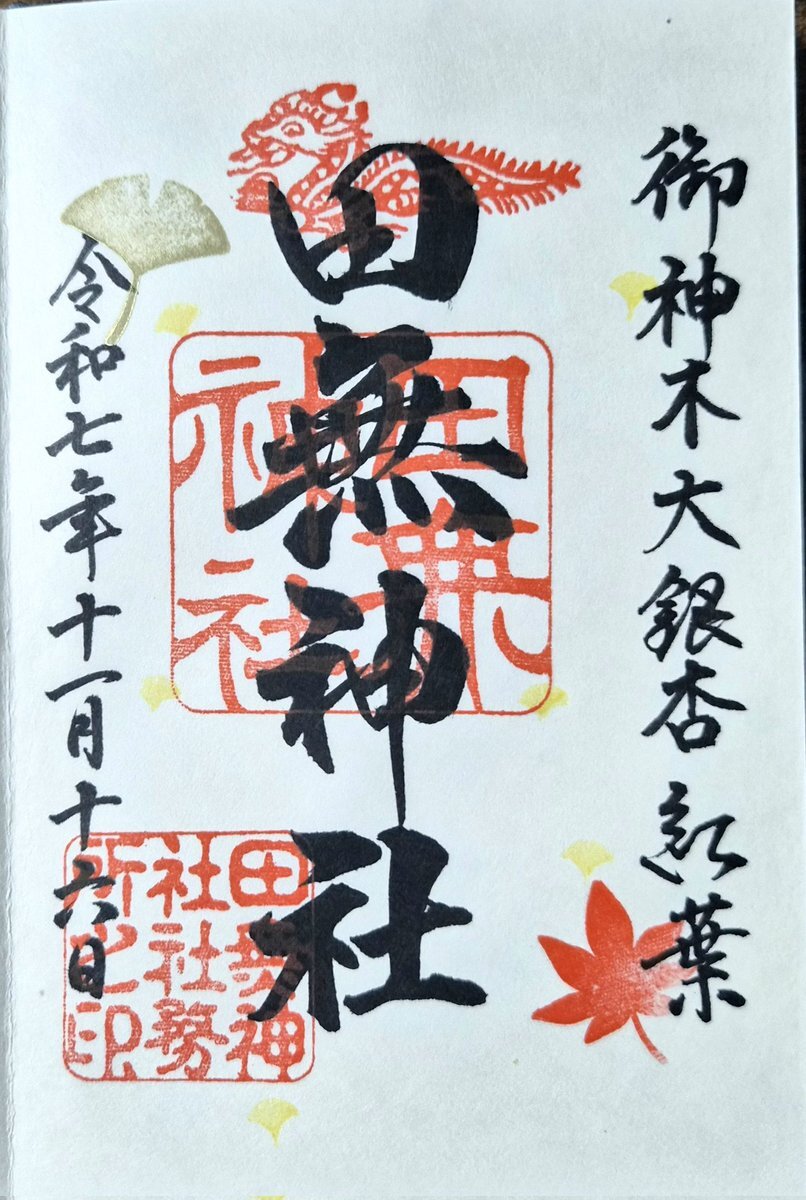 御神木大銀杏 紅葉
田無神社
田無神社
令和七年十一月十六日
田無神社社務所之印